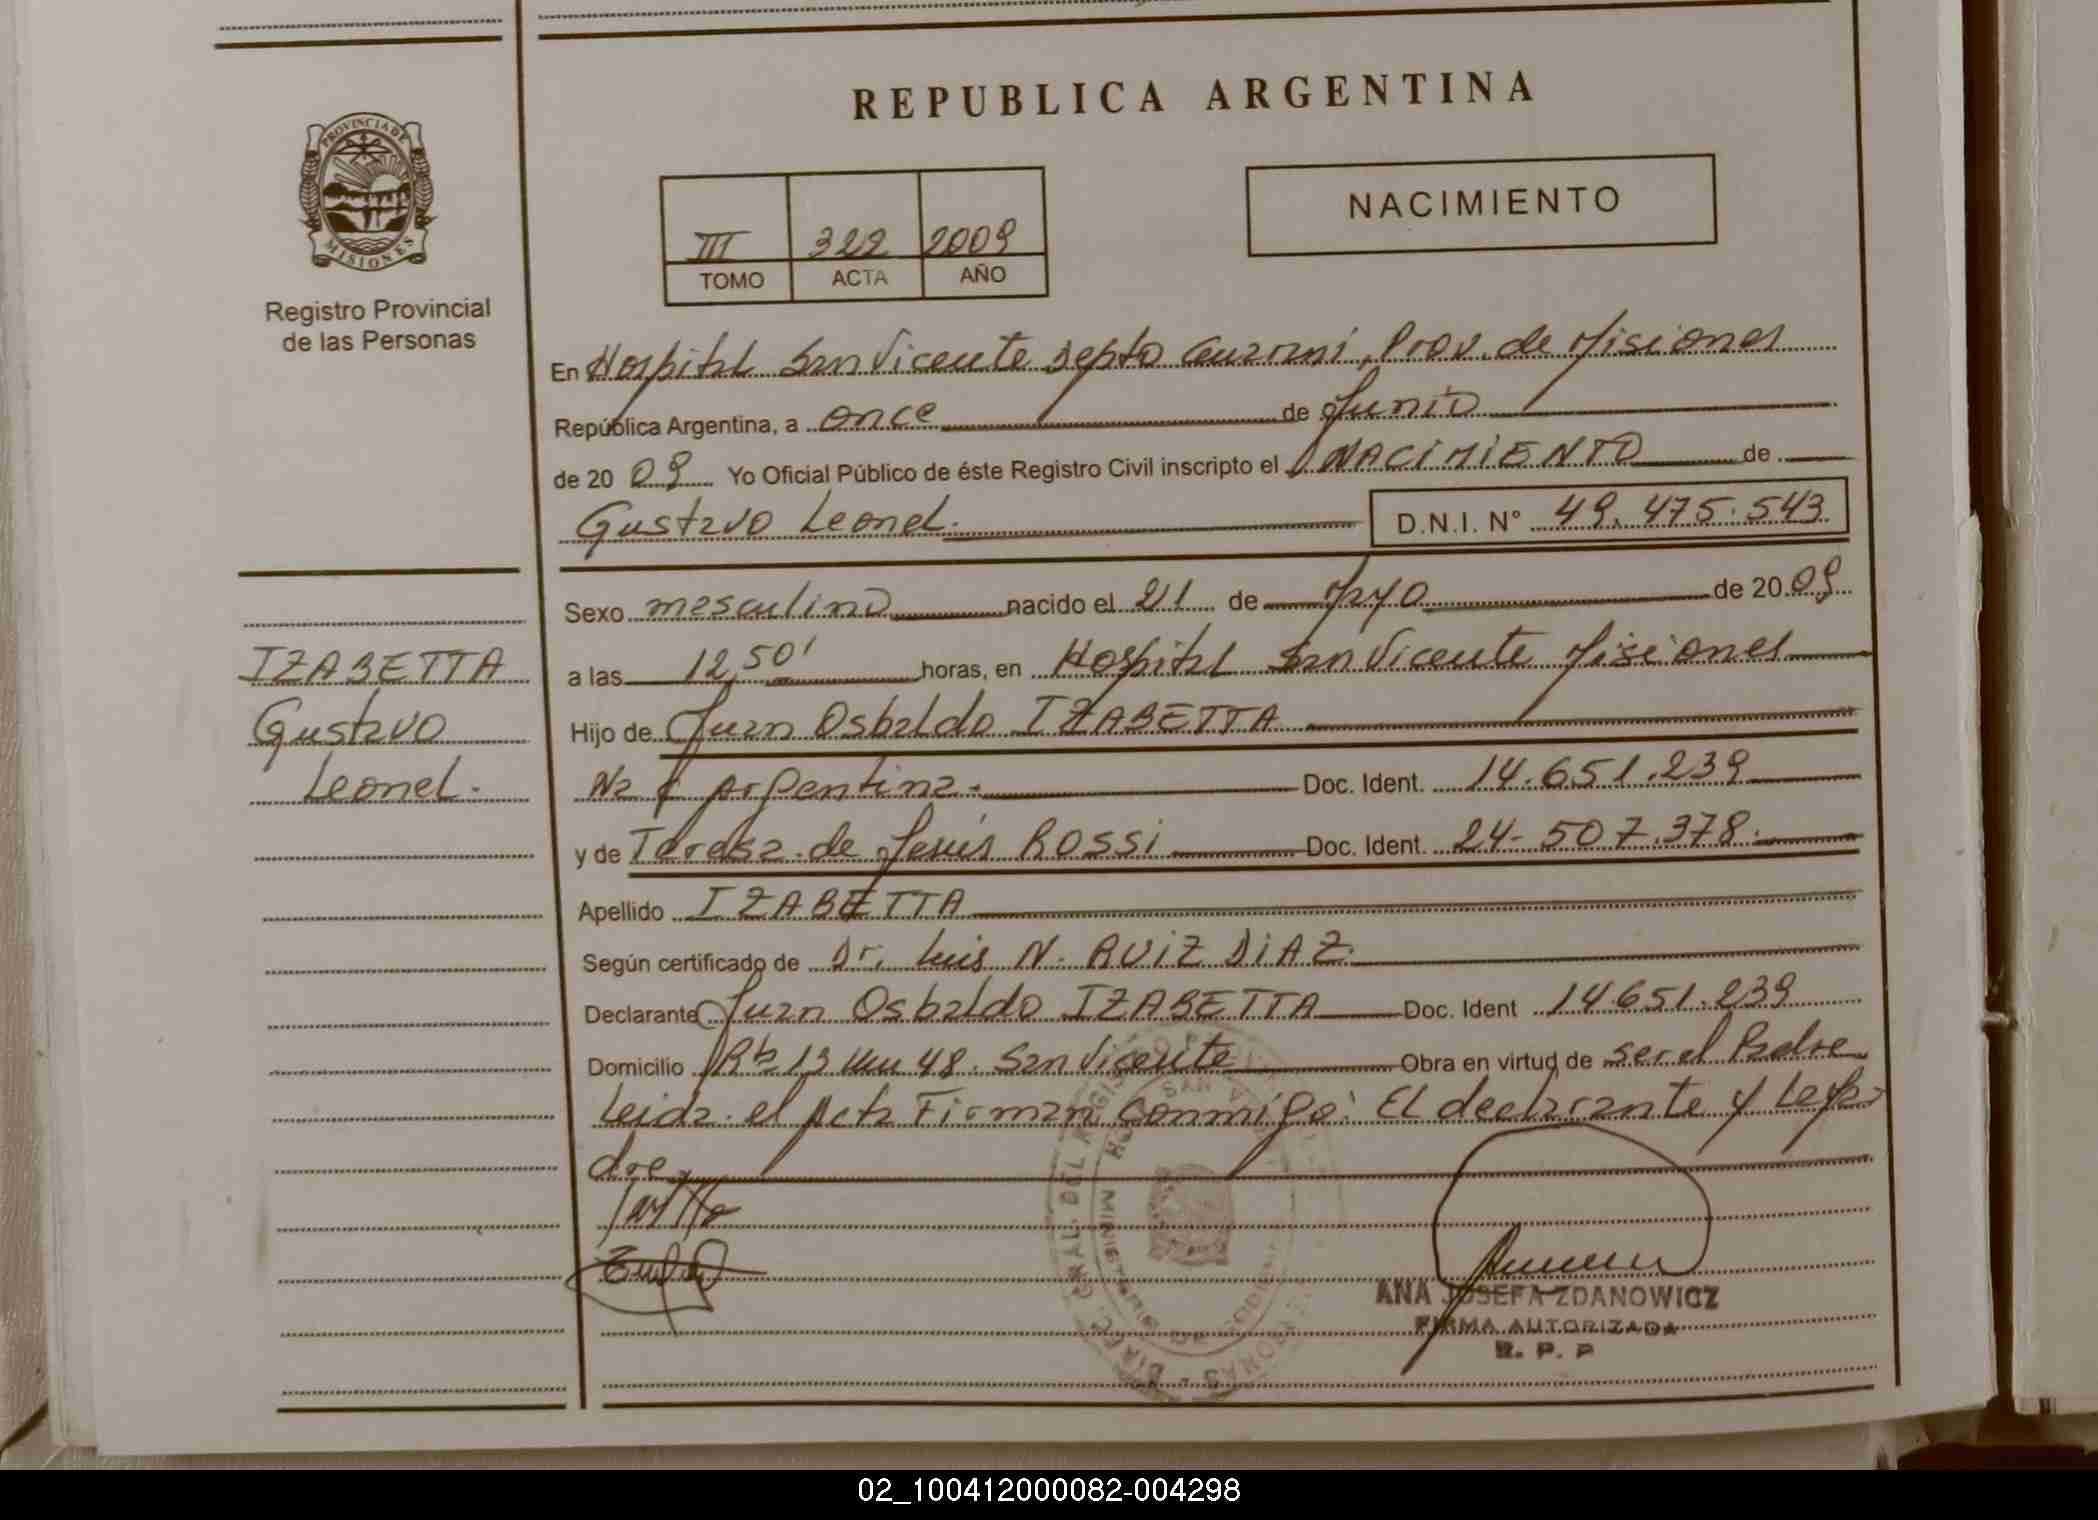 REPUBLICA ARGENTINA
PROVINCIA DE
MISIONES
Registro Provincial
de las Personas
III 322 2009
TOMO ACTA AÑO
NACIMIENTO
En Hospital San Vicente Depto Guarani, Prov. de Misiones
República Argentina, a once de Junio
de 20 09 Yo Oficial Público de éste Registro Civil inscripto el NACIMIENTO de
Gustavo Leonel. D.N.I. Nº 49.475.543
Sexo masculino nacido el 21 de Mayo de 20 09
a las 12,50' horas, en Hospital San Vicente Misiones
Hijo de Juan Osbaldo IZABETTA
Na Argentina. Doc. Ident. 14.651.239
y de Teresa de Jesús ROSSI Doc. Ident. 24-507.378.
Apellido IZABETTA
Según certificado de Dr. Luis N. RUIZ DIAZ.
Declarante Juan Osbaldo IZABETTA Doc. Ident 14.651.239
Domicilio 13 48. San Vicente Obra en virtud de ser el Padre
Leida el Acta Firman conmigo: El declarante y La Ma
dre
IZABETTA
Gustavo
Leonel.
ANA JOSEFA ZDANOWICZ
FIRMA AUTORIZADA
R. P. P
02_100412000082-004298